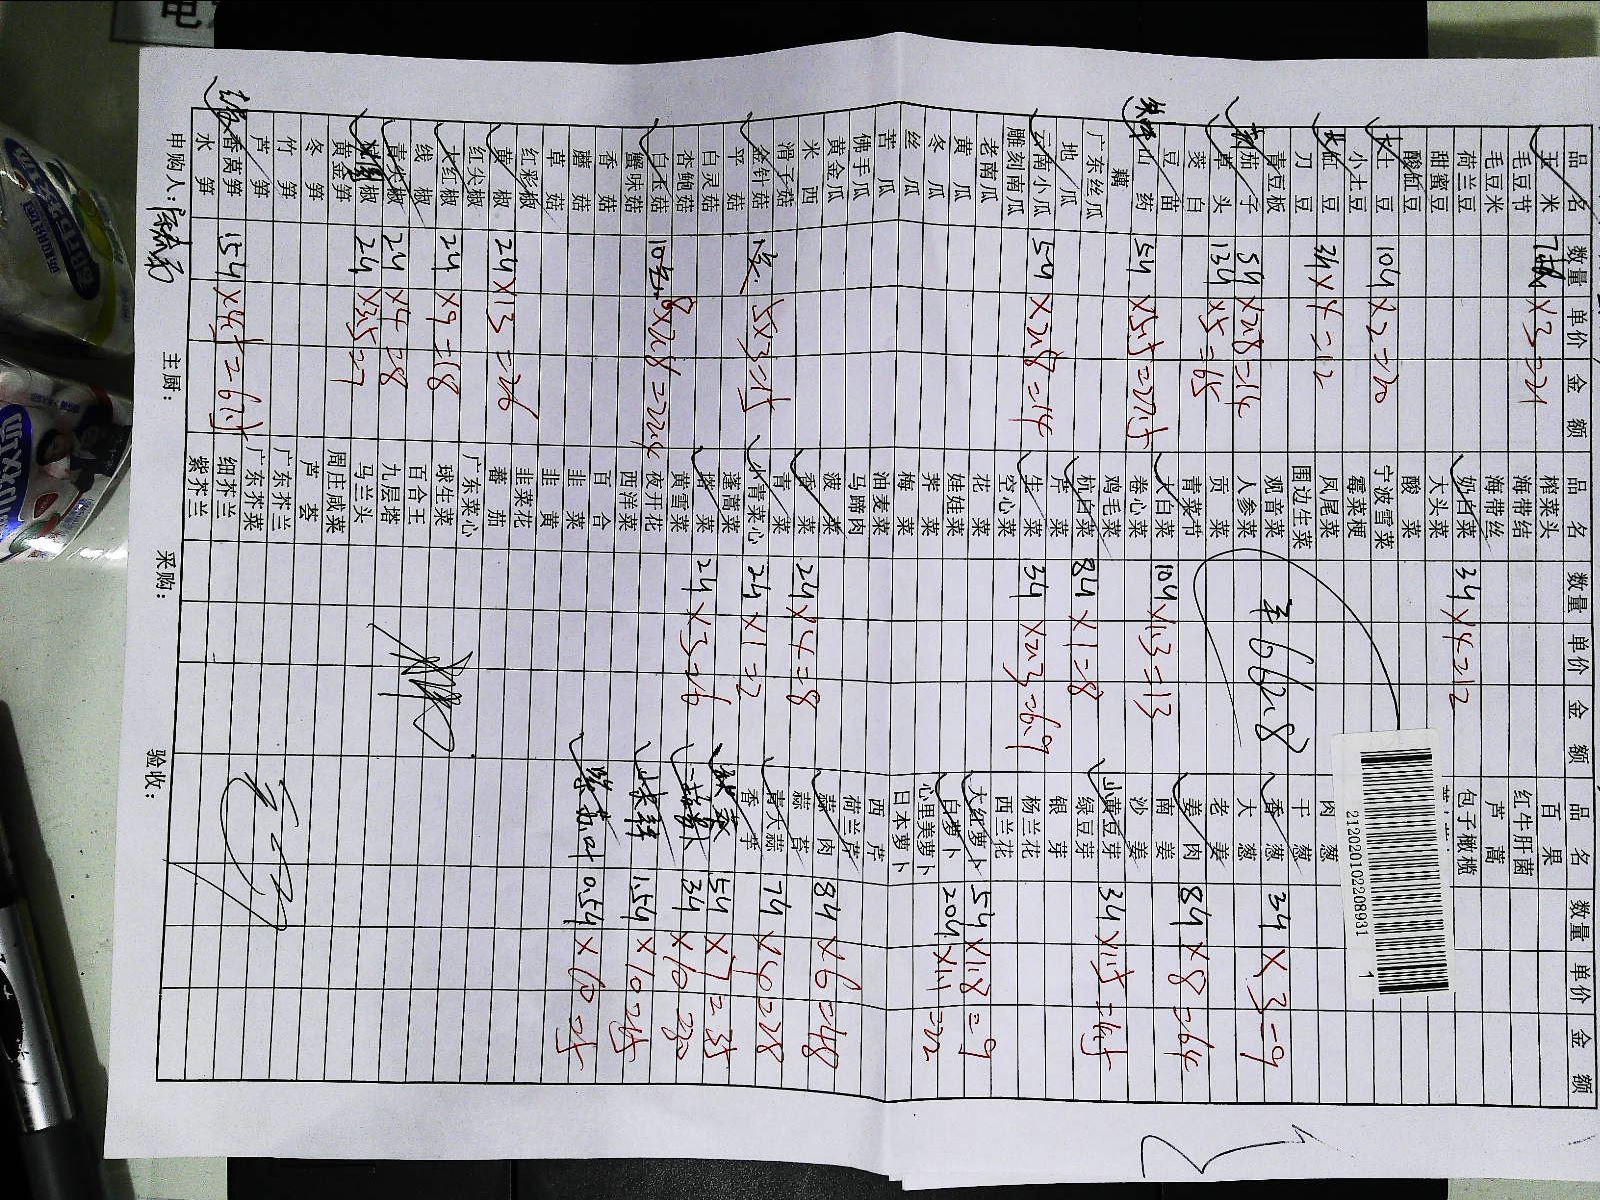 品名 数量 单价 金额 品名 数量 单价 金额 品名 数量 单价 金额
玉米 ×3=21 榨菜头 百果
毛豆节 海带结 红牛肝菌
毛豆米 海带丝 芦蒿
荷兰豆 奶白菜 3斤 ×4=12 包子橄榄
甜蜜豆 大头菜
酸豇豆 酸菜
土豆 10斤 ×2=20 宁波雪菜
小土豆 霉菜梗
豇豆 3斤 ×4=12 凤尾菜 肉葱
刀豆 围边生菜 干葱
青豆板 观音菜 香葱 3斤 ×3=9
茄子 5斤 ×2.8=14 人参菜 大葱
草头 13斤 ×5=65 贡菜 老姜
茭白 青菜节 姜肉 8斤 ×8=64
豆苗 大白菜 10斤 ×1.3=13 南姜
山药 5斤 ×5.5=27.5 卷心菜 沙姜
藕 鸡毛菜 小黄豆芽 3斤 ×1.5=4.5
广东丝瓜 杭白菜 8斤 ×1=8 绿豆芽
地瓜 芹菜 银芽
云南小瓜 5斤 ×2.8=14 生菜 3斤 ×2.3=6.9 杨兰花
雕刻南瓜 空心菜 西兰花
老南瓜 花菜 大红萝卜 5斤 ×1.8=9
黄瓜 娃娃菜 白萝卜 20斤 ×1.1=22
冬瓜 荠菜 心里美萝卜
丝瓜 梅菜 日本萝卜
苦瓜 油麦菜 西芹
佛手瓜 马蹄肉 荷兰芹
黄金瓜 菠菜 蒜肉 8斤 ×6=48
米西 香菜 2斤 ×4=8 蒜苔
滑子菇 青菜 青大蒜 7斤 ×4=28
金针菇 5×3=15 小青菜心 2斤 ×1=2 香芋
平菇 蓬蒿菜 5斤 ×7=35
白灵菇 塔菜 2斤 ×3=6 3斤 ×10=30
杏鲍菇 黄雪菜
白玉菇 10包 8×2.8=22.4 夜开花 1.5斤 ×10=15
蟹味菇 西洋菜
香菇 百合 紫苏叶 0.5斤 ×10=5
蘑菇 韭菜
草菇 韭黄
红彩椒 韭菜花
黄椒 2斤 ×13=26 蕃茄
红尖椒 广东菜心
大红椒 2斤 ×9=18 球生菜
线椒 百合王
青尖椒 2斤 ×4=8 九层塔
椒 2斤 ×3.5=7 马兰头
黄金笋 周庄咸菜
冬笋 芦荟
竹笋 广东芥兰
芦笋 广东芥菜
香莴笋 15斤 ×4.5=67.5 细芥兰
水笋 紫芥兰
¥662.8
申购人: 主厨: 采购: 验收:
2120201022089311
电